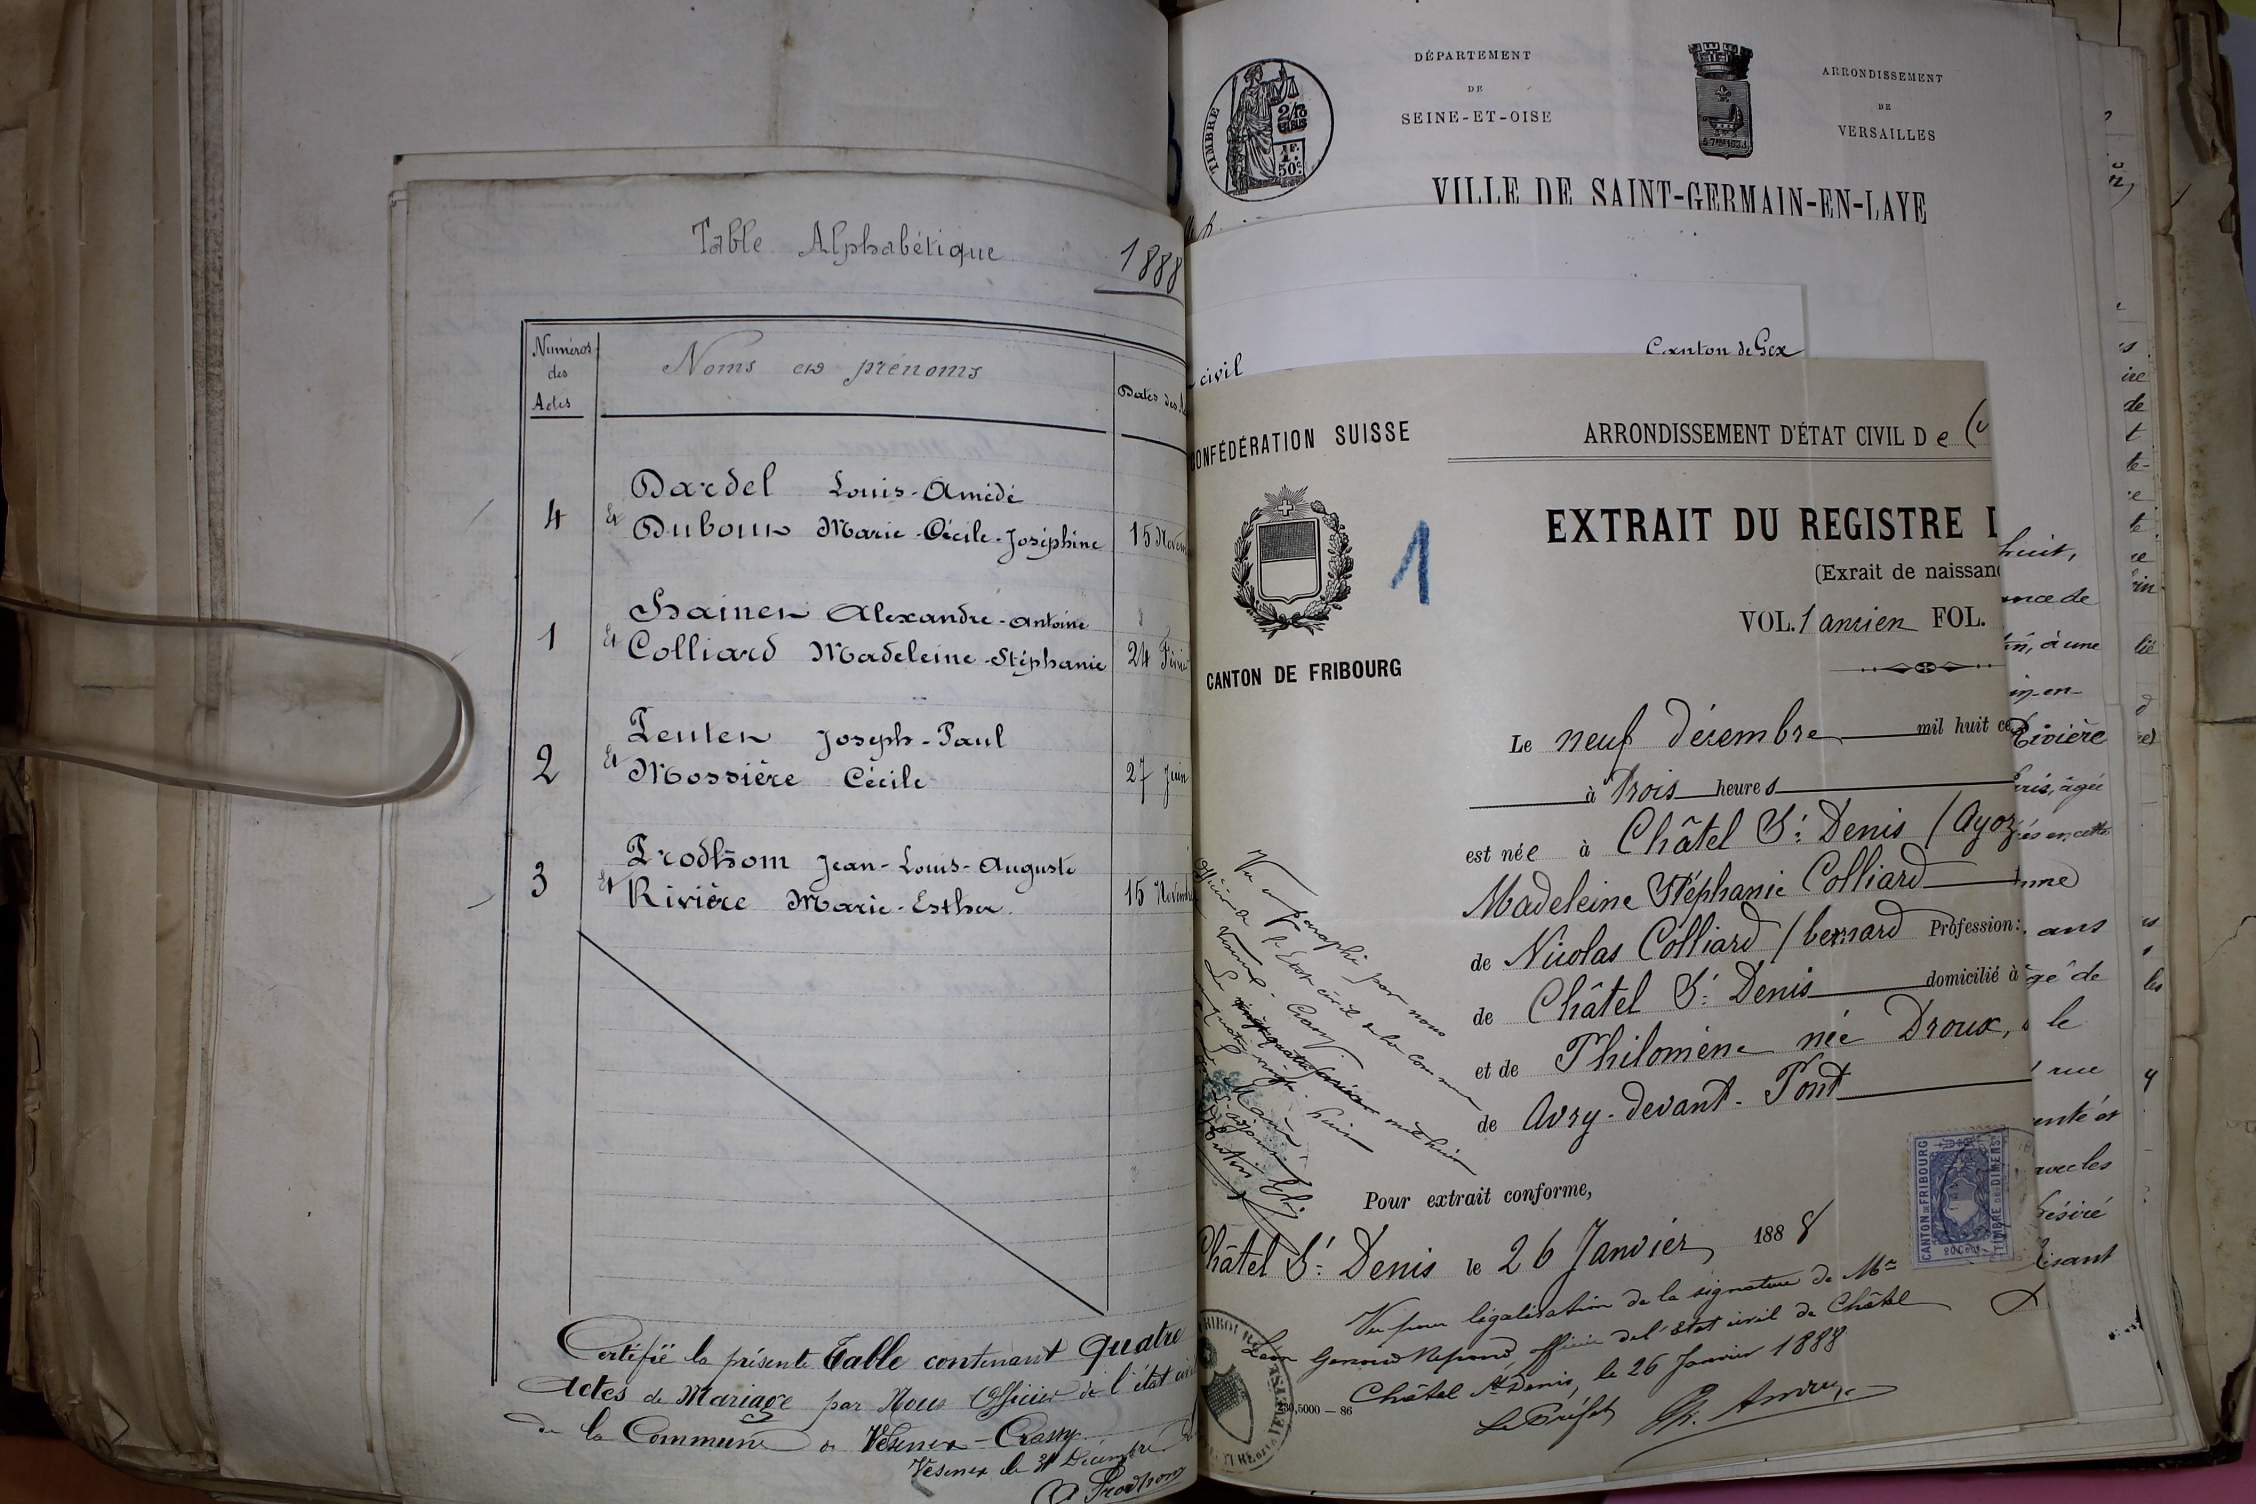 Table Alphabétique 1888
Numéros des Actes
Noms et prénoms
Dates des
4
Dardel Louis-Amédé
et Dubouin Marie-Cécile-Joséphine 15 Novem
1
Hainen Alexandre-Antoine
et Colliard Madeleine-Stéphanie 24 Févri
2
Penten Joseph-Paul
et Mossière Cécile 27 Juin
3
Prodhom Jean-Louis-Auguste
et Rivière Marie-Esther. 15 Novembre
Certifié la présente Table contenant quatre
Actes de Mariage par Nous Officier de l'état civil
de la Commune de Vésenex-Crassy
Vésenex le 31 Décembre
Prodhom
TIMBRE
2/10
EN SUS
1F.
50c.
DÉPARTEMENT
DE
SEINE-ET-OISE
ARRONDISSEMENT
DE
VERSAILLES
VILLE DE SAINT-GERMAIN-EN-LAYE
civil
Canton de Gex
CONFÉDÉRATION SUISSE
CANTON DE FRIBOURG
1
ARRONDISSEMENT D'ÉTAT CIVIL De
EXTRAIT DU REGISTRE
(Exrait de naissan
VOL. 1 ancien FOL.
Le neuf décembre mil huit ce
à trois heures
est née à Châtel St. Denis (Ayoz
Madeleine Stéphanie Colliard
de Nicolas Colliard / bernard Profession:
de Châtel St. Denis domicilié à
et de Philomène née Droux,
de Avry-devant-Pont
Pour extrait conforme,
Châtel St. Denis le 26 Janvier 1888
Vu pour légalisation de la signature de Mr
Léon Genoud Repond officier de l'état civil de Châtel
Châtel St Denis, le 26 Janvier 1888
Le Préfet
230,5000 — 86
CANTON DE FRIBOURG
TIMBRE DE DIMENS
Vu et paraphé par nous
officier de l'Etat civil de la commune
huit
Le Maire
huit,
à une
Rivière
âgée
ans
le
rue
avec les